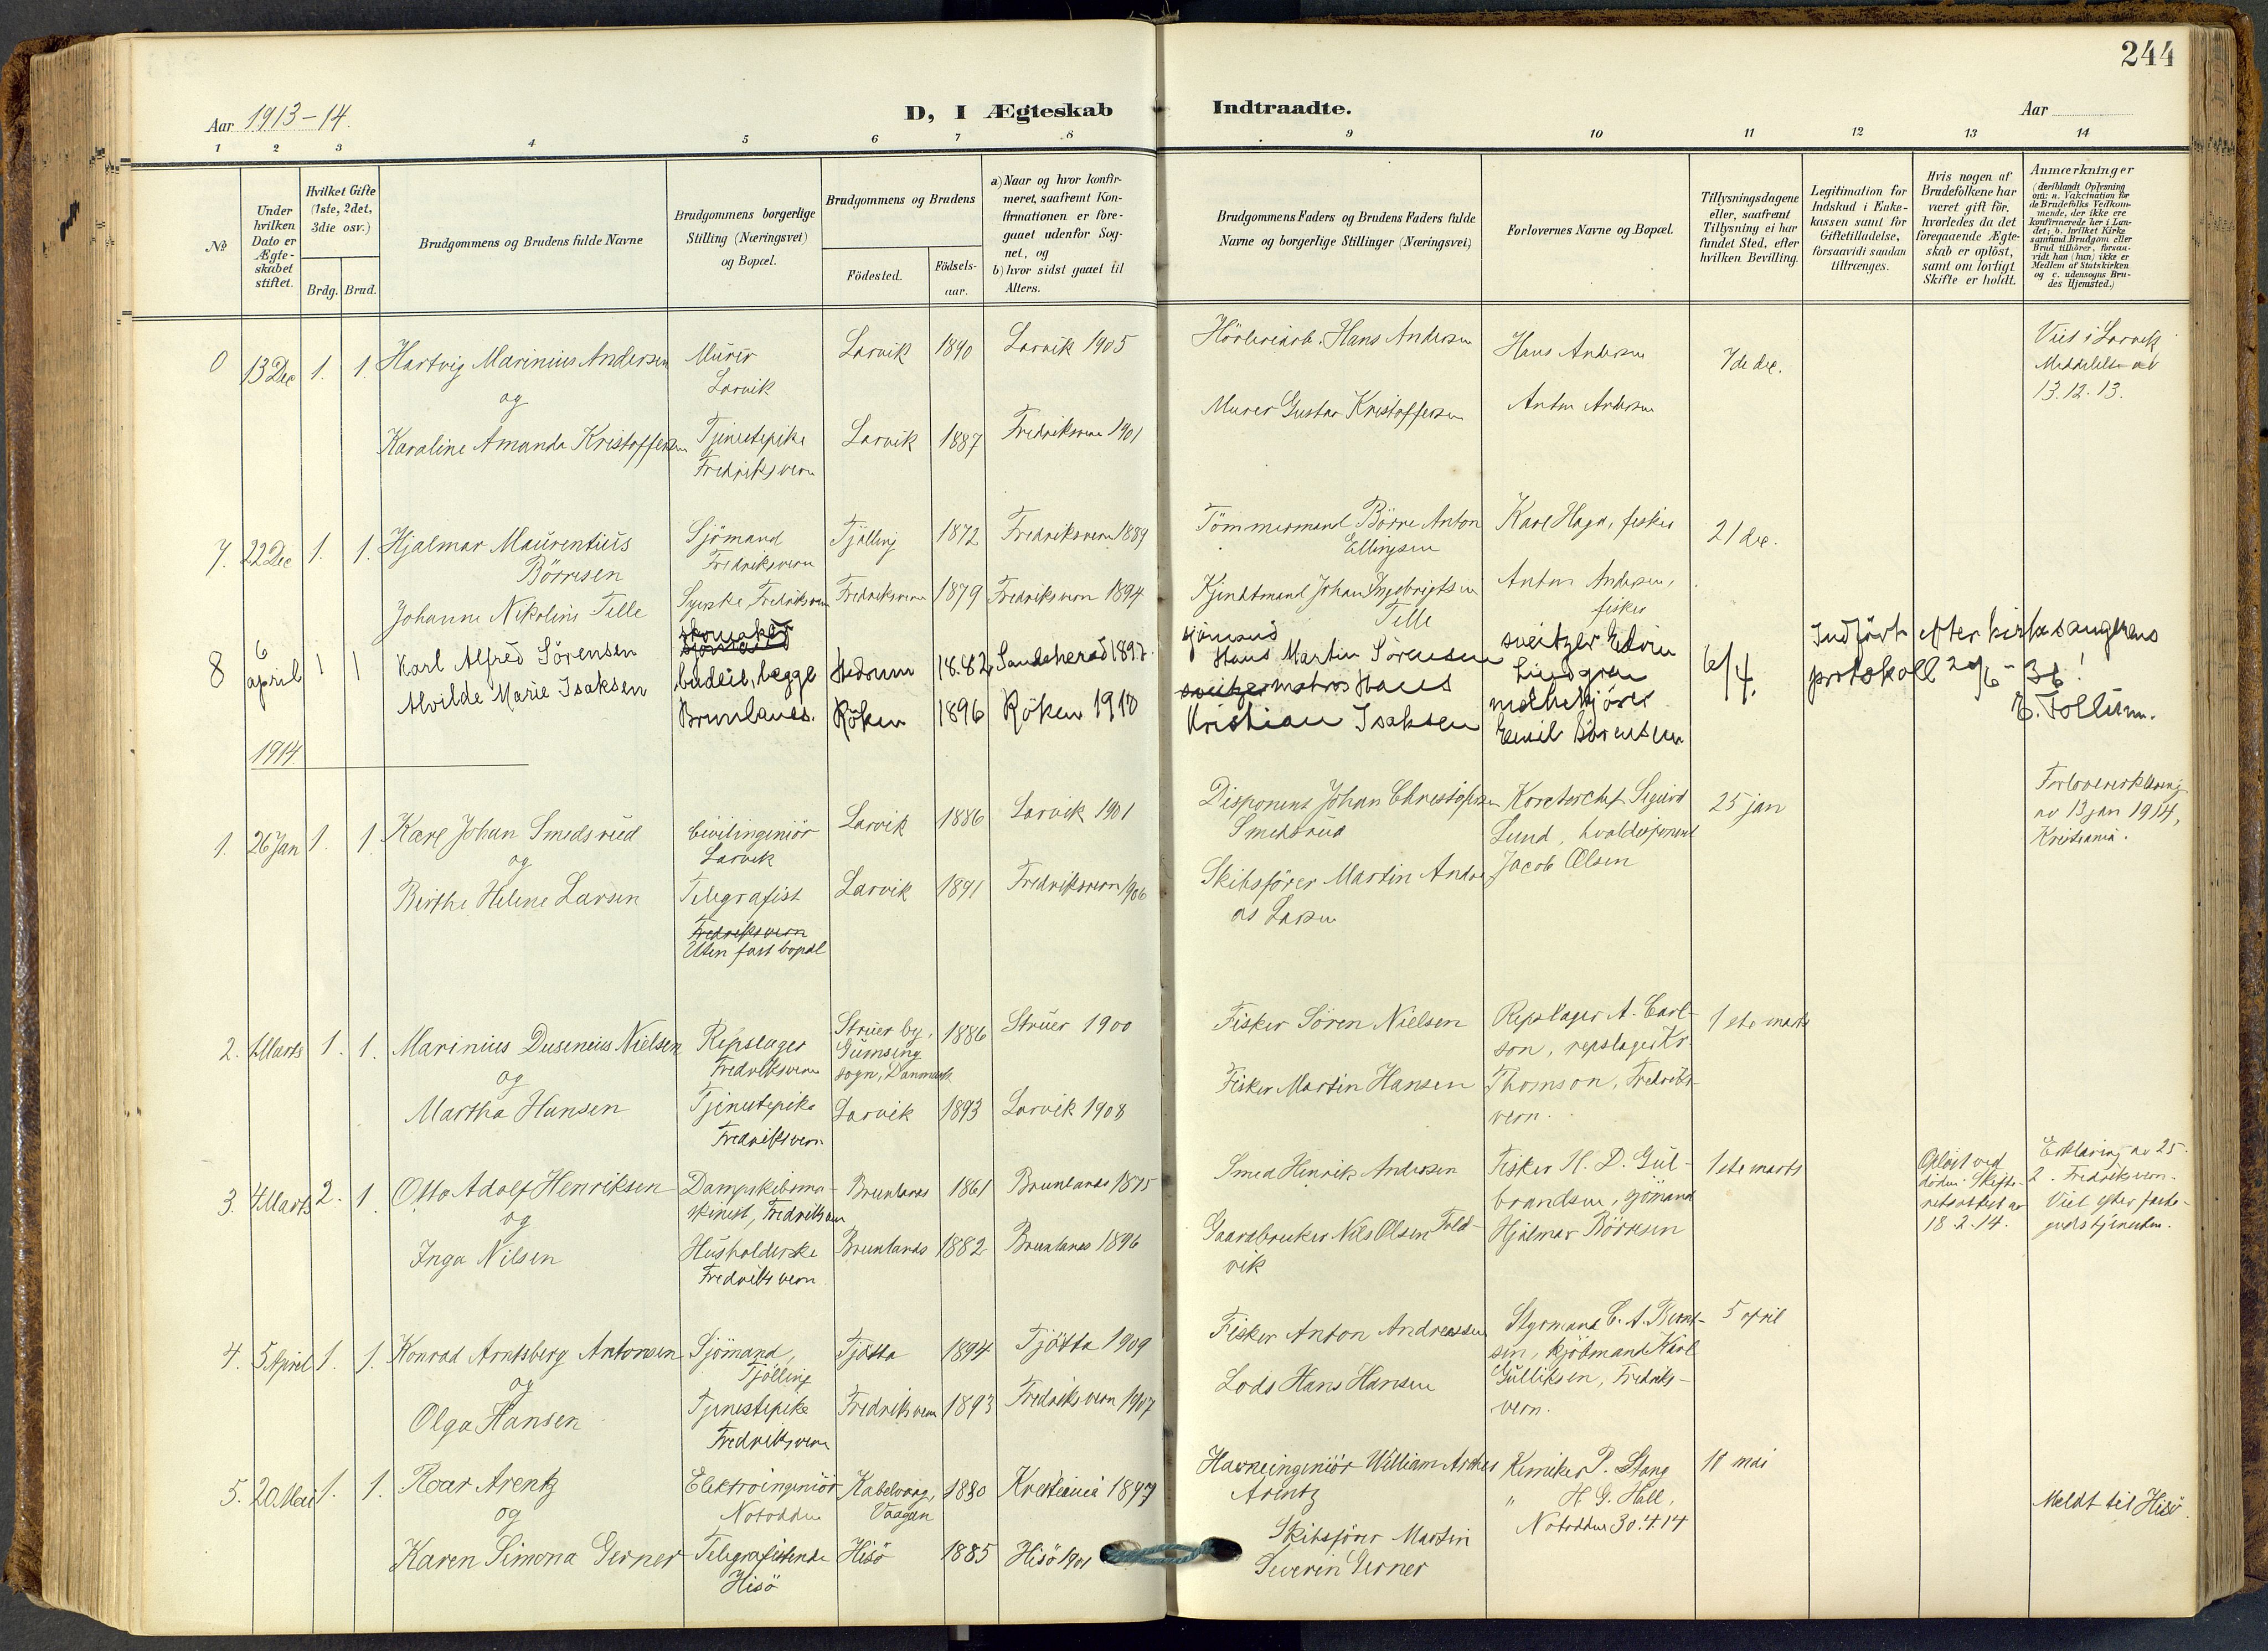 244
Aar 1913-14.
D, I Ægteskab Indtraadte.
Aar
1 2 3 4 5 6 7 8 9 10 11 12 13 14
No
Under hvilken Dato er Ægteskabet stiftet.
Hvilket Gifte (1ste, 2det, 3die osv.)
Brdg. Brud.
Brudgommens og Brudens fulde Navne
Brudgommens borgerlige Stilling (Næringsvei) og Bopæl.
Brudgommens og Brudens
Födested. Födsels-aar.
a) Naar og hvor konfirmeret, saafremt Konfirmationen er foregaaet udenfor Sognet, og
b) hvor sidst gaaet til Alters.
Brudgommens Faders og Brudens Faders fulde Navne og borgerlige Stillinger (Næringsvei)
Forlovernes Navne og Bopæl.
Tillysningsdagene eller, saafremt Tillysning ei har fundet Sted, efter hvilken Bevilling.
Legitimation for Indskud i Enkekassen samt for Giftetilladelse, forsaavidt saadan tiltrænges.
Hvis nogen af Brudefolkene har været gift för, hvorledes da det foregaaende Ægteskab er oplöst, samt om lovligt Skifte er holdt.
Anmærkninger (deriblandt Oplysning om: a. Vakcination for de Brudefolks Vedkommende, der ikke ere konfirmerede her i Landet; b. hvilket Kirkesamfund Brudgom eller Brud tilhörer, forsaavidt han (hun) ikke er Medlem af Statskirken og c. udensogns Brudes Hjemsted.)
0 13 Dec 1. 1. Hartvig Marinius Andersen Murer Larvik Larvik 1890 Larvik 1905 Hans Andersen Hans Andersen 7de dec. Viet i Larvik
Meddelelse av 13.12.13.
og
Karoline Amanda Kristoffersen Tjenestepike Fredriksvern Larvik 1887 Fredriksvern 1901 Murer Gustav Kristoffersen Anton Andersen
7. 22 Dec 1. 1. Hjalmar Maurentius Börresen Sjömand Fredriksvern Tjölling 1872 Fredriksvern 1889 Tömmermand Börre Anton Ellingsen Karl Haga, fisker 21 dec.
Johanne Nikoline Telle Syerske Fredriksvern Fredriksvern 1879 Fredriksvern 1894 Johan Ingebrigtsen Telle Anton Andersen, fisker
8 6 april 1 1 Karl Alfred Sörensen skomaker sjömand Hedrum 1882 Sandeherad 1897 sjömand Hans Martin Sörensen sveitzer Edvin Lindgren 6/4. Indfört efter kirkesangerens
protokoll 20/6 - 36!
E. Follum.
Alvilde Marie Isaksen budeie, begge Brunlanes. Röken 1896 Röken 1910 matros Hans Kristian Isaksen Emil Sörensen
1914
1. 26 Jan 1. 1. Karl Johan Smedsrud Civilingeniör Larvik Larvik 1886 Larvik 1901 Disponent Johan Christofersen Smedsrud Kontorchef Sigurd Lund, hvaldisponent Jacob Olsen 25 jan Forlovererklæring
av 13 jan 1914,
Kristiania.
og
Birthe Helene Larsen Telegrafist Fredriksvern Uten fast bopæl Larvik 1891 Fredriksvern 1906 Skibsförer Martin Andreas Larsen
2. 1 Marts 1. 1. Marinius Duseneius Nielsen Repslager Fredriksvern Struer by, Gimsing sogn, Danmark 1886 Struer 1900 Fisker Sören Nielsen Repslager A. Carlson, repslager Kr. Thomson, Fredriksvern. 1ste marts
og
Martha Hansen Tjenestepike Fredriksvern Larvik 1893 Larvik 1908 Fisker Martin Hansen
3. 4 Marts 2. 1 Otto Adolf Henriksen Dampskibsmaskinist, Fredriksvern Brunlanes 1861 Brunlanes 1875 Smed Henrik Andersen Fisker H. D. Gulbrandsen, sjömand Hjalmar Börresen 1ste marts Oplöst ved döden. Skifteretsattest av 18.2.14. Erklæring av 25.2. Fredriksvern.
Viet efter fastegudstjenesten.
og
Inga Nilsen Husholderske Fredriksvern Brunlanes 1882 Brunlanes 1896 Gaardbruker Nils Olsen Foldvik
4. 5 April 1. 1. Konrad Arntsberg Antonsen Sjömand, Tjölling Tjötta 1894 Tjötta 1909 Fisker Anton Andreassen Styrmand C. A. Berntsen, kjöbmand Karl Gulliksen, Fredriksvern. 5 april
og
Olga Hansen Tjenestepike Fredriksvern Fredriksvern 1893 Fredriksvern 1907 Lods Hans Hansen
5. 20 Mai 1. 1. Roar Arentz Elektroingeniör Notodden Kabelvaag, Vaagan 1880 Kristiania 1897 Havneingeniör William Arentz Kemiker P. Stang
" H. G. Hall,
Notodden 30.4.14 10 mai Meldt til Hisö.
og
Karen Simona Gerner Telegrafistinde Hisö Hisö 1885 Hisö 1901 Skibsförer Martin Severin Gerner